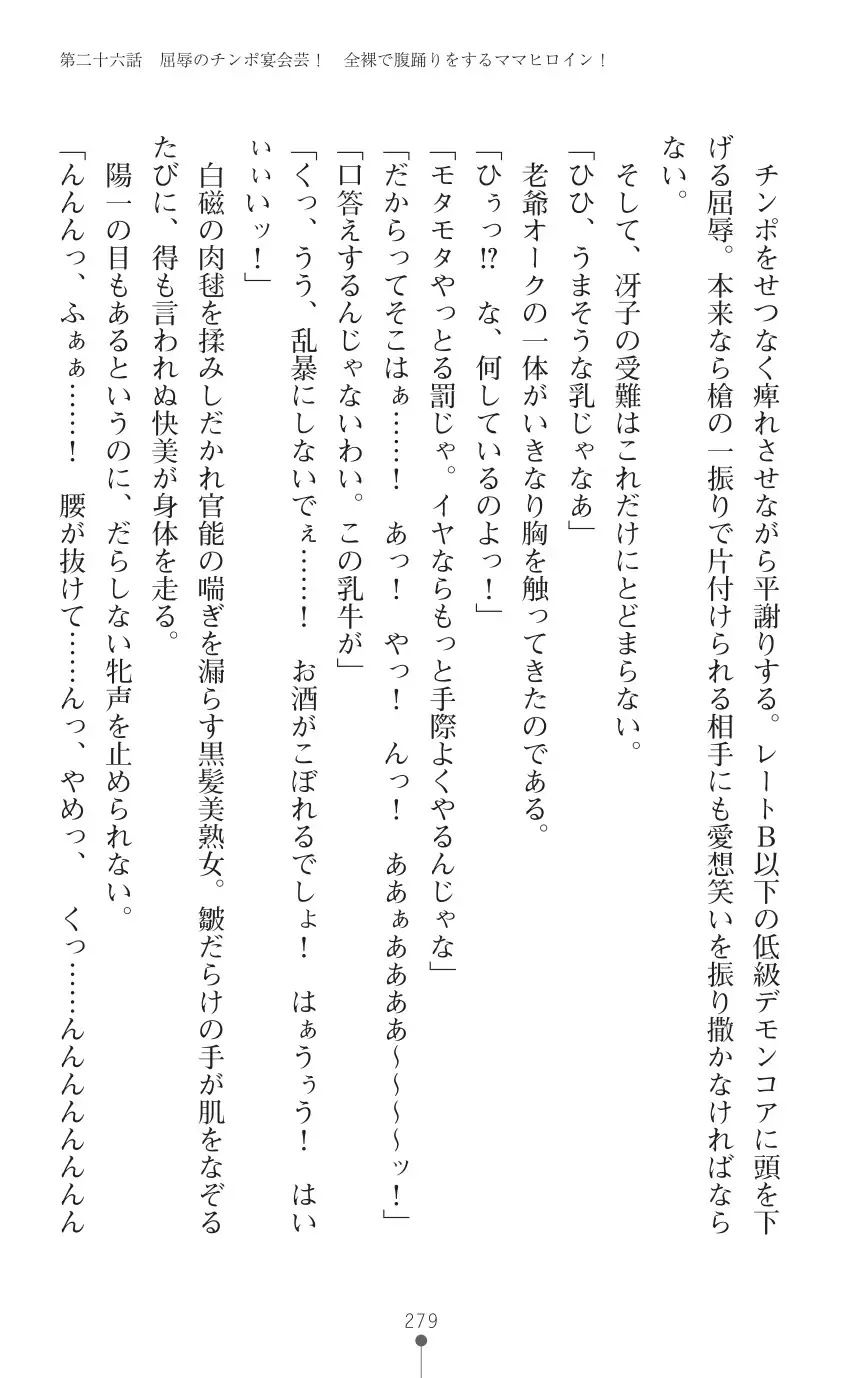 第二十六話　屈辱のチンポ宴会芸！　全裸で腹踊りをするママヒロイン！
チンポをせつなく痺れさせながら平謝りする。レートＢ以下の低級デモンコアに頭を下
げる屈辱。本来なら槍の一振りで片付けられる相手にも愛想笑いを振り撒かなければなら
ない。
そして、冴子の受難はこれだけにとどまらない。
「ひひ、うまそうな乳じゃなあ」
老爺オークの一体がいきなり胸を触ってきたのである。
「ひぅっ!?　な、何しているのよっ！」
「モタモタやっとる罰じゃ。イヤならもっと手際よくやるんじゃな」
「だからってそこはぁ……！　あっ！　やっ！　んっ！　ああぁああああ～～～～ッ！」
「口答えするんじゃないわい。この乳牛が」
「くっ、うう、乱暴にしないでぇ……！　お酒がこぼれるでしょ！　はぁうぅう！　はい
ぃぃいッ！」
白磁の肉毬を揉みしだかれ官能の喘ぎを漏らす黒髪美熟女。皺だらけの手が肌をなぞる
たびに、得も言われぬ快美が身体を走る。
陽一の目もあるというのに、だらしない牝声を止められない。
「んんんっ、ふぁぁ……！　腰が抜けて……んっ、やめっ、　くっ……んんんんんんんん
279